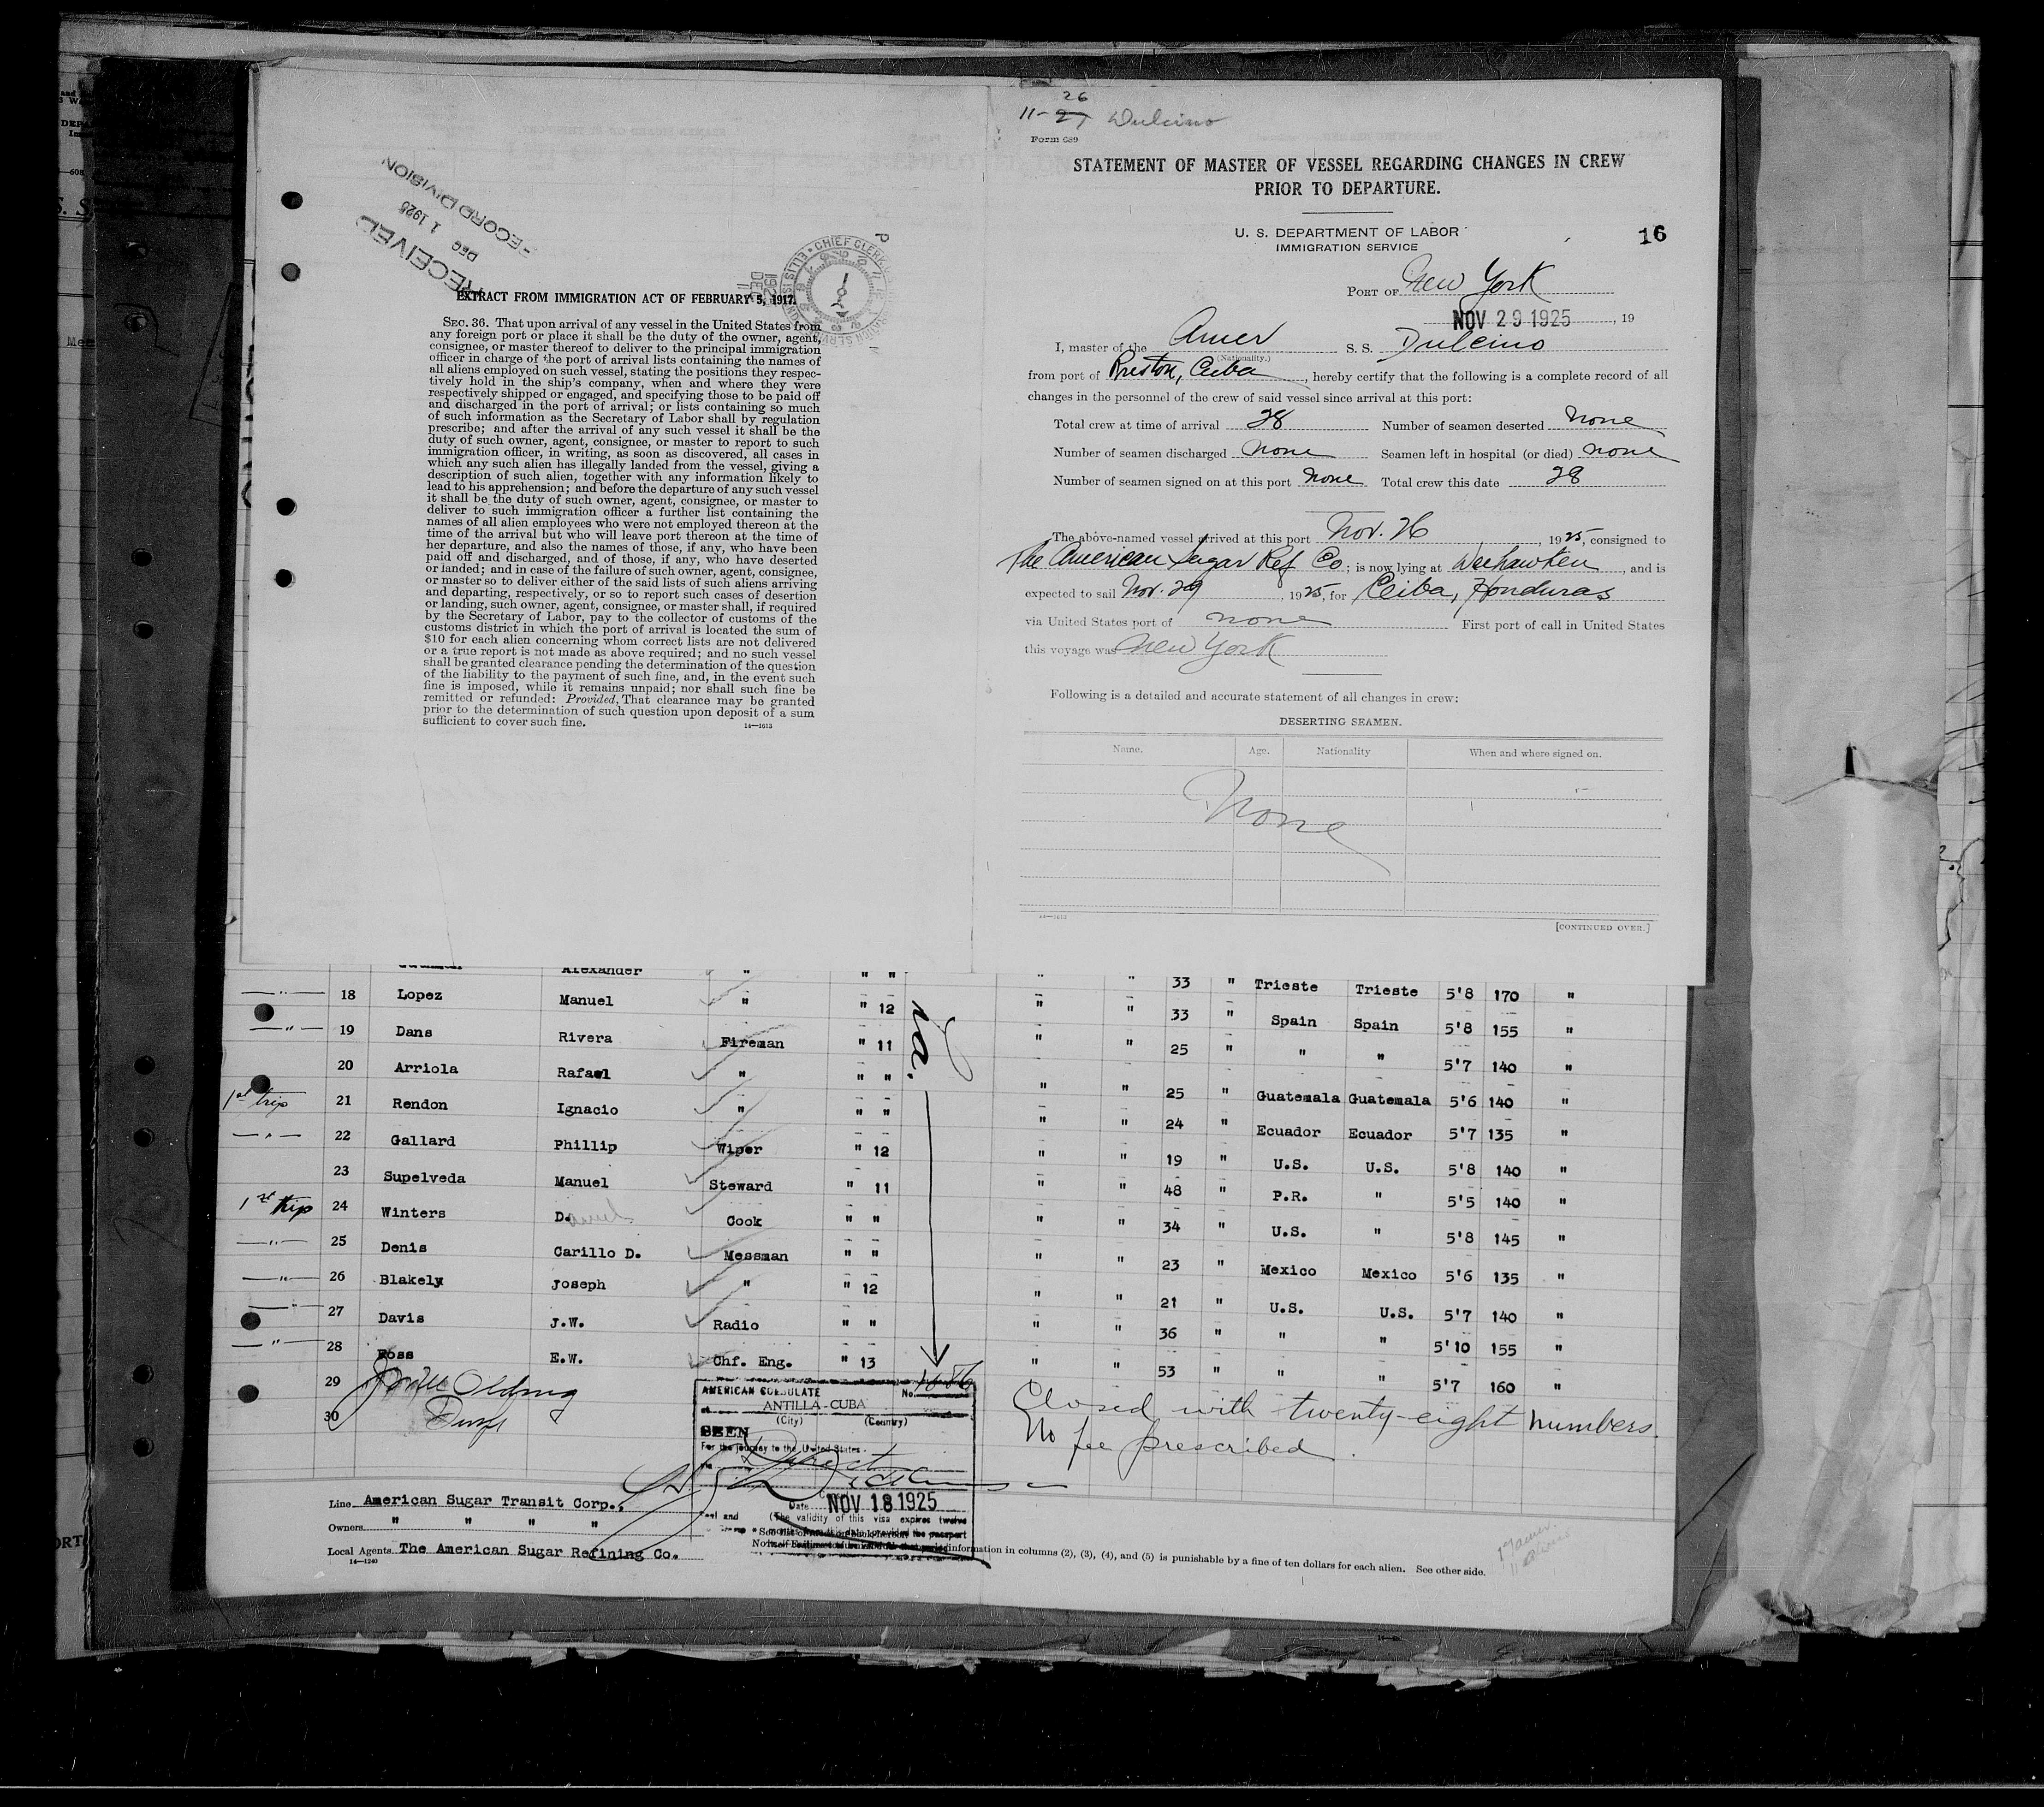 RECEIVED
DEC 1 1925
RECORD DIVISION
CHIEF CLERK
DEC
EXTRACT FROM IMMIGRATION ACT OF FEBRUARY 5, 1917.
SEC. 36. That upon arrival of any vessel in the United States from
any foreign port or place it shall be the duty of the owner, agent,
consignee, or master thereof to deliver to the principal immigration
officer in charge of the port of arrival lists containing the names of
all aliens employed on such vessel, stating the positions they respec-
tively hold in the ship's company, when and where they were
respectively shipped or engaged, and specifying those to be paid off
and discharged in the port of arrival; or lists containing so much
of such information as the Secretary of Labor shall by regulation
prescribe; and after the arrival of any such vessel it shall be the
duty of such owner, agent, consignee, or master to report to such
immigration officer, in writing, as soon as discovered, all cases in
which any such alien has illegally landed from the vessel, giving a
description of such alien, together with any information likely to
lead to his apprehension; and before the departure of any such vessel
it shall be the duty of such owner, agent, consignee, or master to
deliver to such immigration officer a further list containing the
names of all alien employees who were not employed thereon at the
time of the arrival but who will leave port thereon at the time of
her departure, and also the names of those, if any, who have been
paid off and discharged, and of those, if any, who have deserted
or landed; and in case of the failure of such owner, agent, consignee,
or master so to deliver either of the said lists of such aliens arriving
and departing, respectively, or so to report such cases of desertion
or landing, such owner, agent, consignee, or master shall, if required
by the Secretary of Labor, pay to the collector of customs of the
customs district in which the port of arrival is located the sum of
$10 for each alien concerning whom correct lists are not delivered
or a true report is not made as above required; and no such vessel
shall be granted clearance pending the determination of the question
of the liability to the payment of such fine, and, in the event such
fine is imposed, while it remains unpaid; nor shall such fine be
remitted or refunded: Provided, That clearance may be granted
prior to the determination of such question upon deposit of a sum
sufficient to cover such fine.
14—1613
26
11-27 Dulcino
Form 689
STATEMENT OF MASTER OF VESSEL REGARDING CHANGES IN CREW
PRIOR TO DEPARTURE.
U. S. DEPARTMENT OF LABOR
IMMIGRATION SERVICE
16
PORT OF New York
NOV 29 1925, 19
I, master of the Amer S. S. Dulcino
(Nationality.)
from port of Preston, Cuba, hereby certify that the following is a complete record of all
changes in the personnel of the crew of said vessel since arrival at this port:
Total crew at time of arrival 28 Number of seamen deserted none
Number of seamen discharged none Seamen left in hospital (or died) none
Number of seamen signed on at this port none Total crew this date 28
The above-named vessel arrived at this port Nov. 26, 1925, consigned to
The American Sugar Ref Co; is now lying at Weehawken, and is
expected to sail Nov. 29, 1925, for Ceiba, Honduras
via United States port of none First port of call in United States
this voyage was New York
Following is a detailed and accurate statement of all changes in crew:
DESERTING SEAMEN.
Name. Age. Nationality When and where signed on.
None
14—1613
[CONTINUED OVER.]
Alexander " " " " " 33 " Trieste Trieste 5'8 170 "
—"— 18 Lopez Manuel " " 12 " " 33 " Spain Spain 5'8 155 "
—"— 19 Dans Rivera Fireman " 11 " " 25 " " " 5'7 140 "
20 Arriola Rafael " " " " " 25 " Guatemala Guatemala 5'6 140 "
1st trip 21 Rendon Ignacio " " " " " 24 " Ecuador Ecuador 5'7 135 "
—"— 22 Gallard Phillip Wiper " 12 " " 19 " U.S. U.S. 5'8 140 "
23 Supelveda Manuel Steward " 11 " " 48 " P.R. " 5'5 140 "
1st trip 24 Winters D. Cook " " " " 34 " U.S. " 5'8 145 "
—"— 25 Denis Carillo D. Messman " " " " 23 " Mexico Mexico 5'6 135 "
—"— 26 Blakely Joseph " " 12 " " 21 " U.S. U.S. 5'7 140 "
—"— 27 Davis J.W. Radio " " " " 36 " " " 5'10 155 "
—"— 28 Foss E.W. Chf. Eng. " 13 " " 53 " " " 5'7 160 "
29
30
Closed with twenty-eight numbers.
No fee prescribed.
AMERICAN CONSULATE No.
at ANTILLA - CUBA
(City) (Country)
SEEN
For the journey to the United States.
Date NOV 18 1925
(The validity of this visa expires twelve
Line American Sugar Transit Corp.,
Owners " " " "
Local Agents The American Sugar Refining Co.
14—1240
information in columns (2), (3), (4), and (5) is punishable by a fine of ten dollars for each alien. See other side.